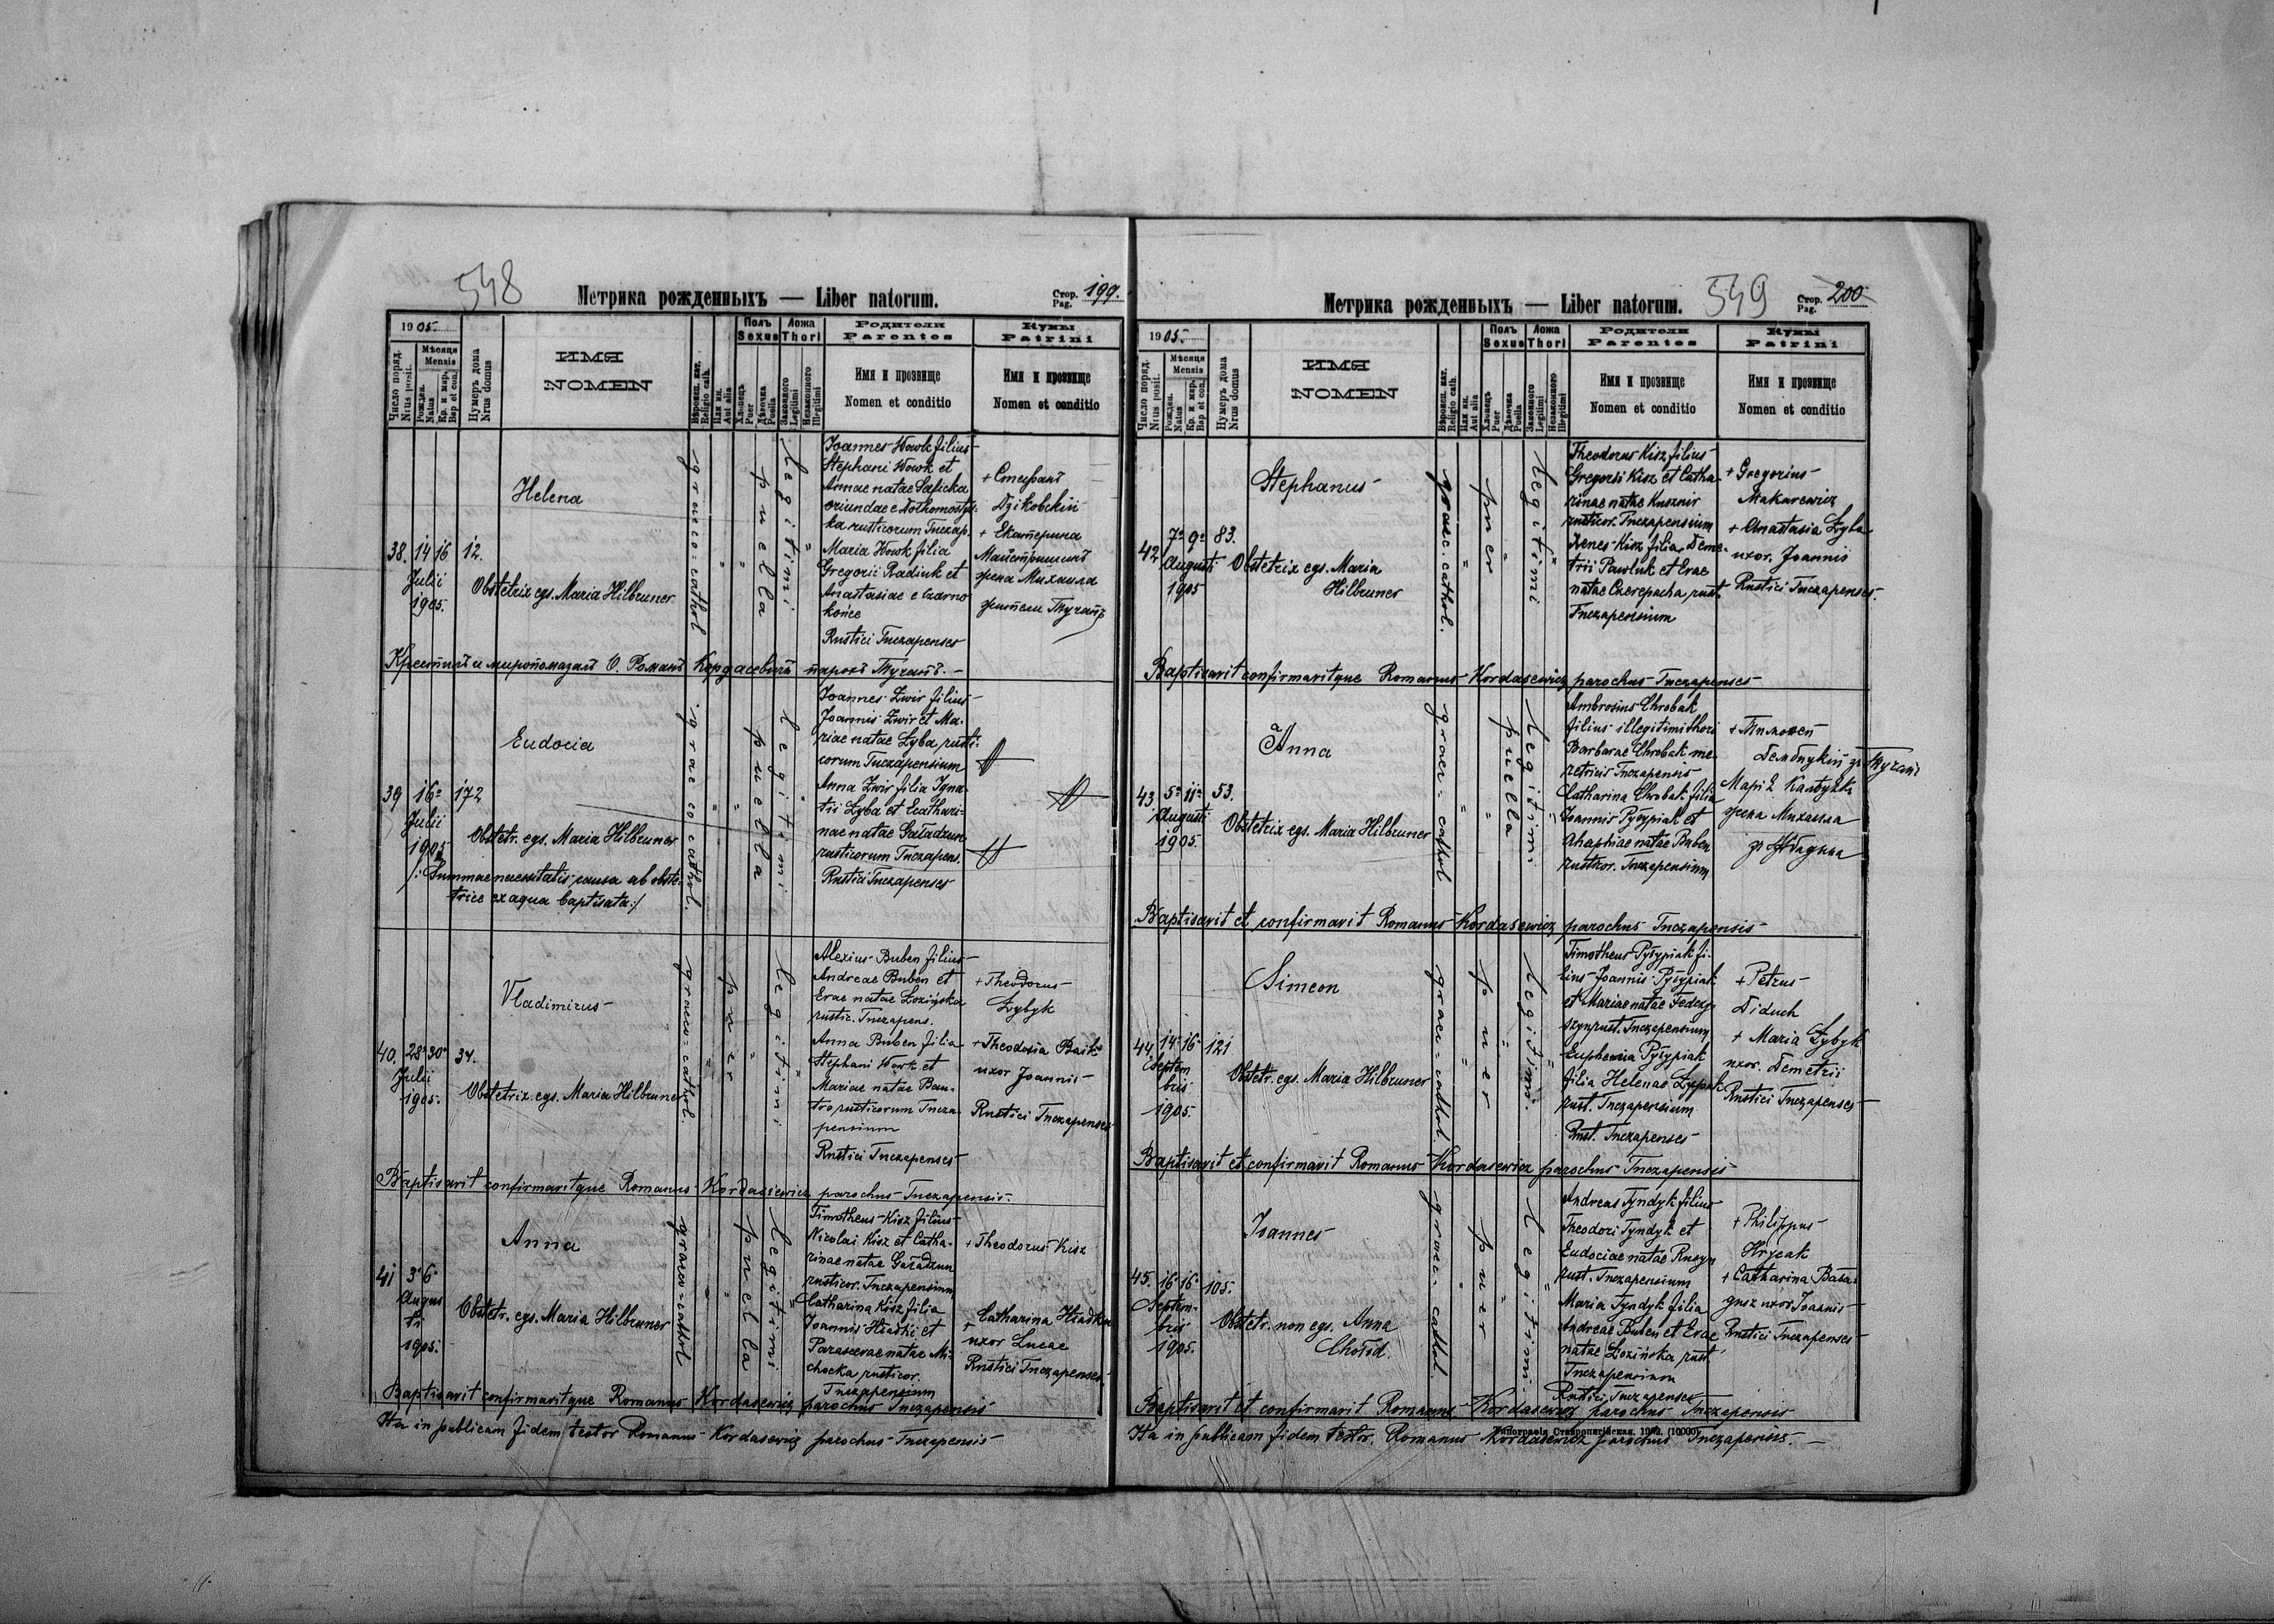 548
Метрика рожденныхъ — Liber natorum.
Стор. Pag. 199.
1905.
Число поряд. Nrus posit.
Мѣсяця Mensis
Рожден. Natus
Кр. и мир. Bap et con.
Нумеръ дома Nrus domus
ИМЯ
NOMEN
Вѣроисп. кат. Religio cath.
Или ин. Aut alia
Полъ Sexus
Хлопець Puer
Дѣвочка Puella
Ложа Thori
Законного Legitimi
Незаконного Illegitimi
Родители
Parentes
Имя и прозвище
Nomen et conditio
Кумы
Patrini
Имя и прозвище
Nomen et conditio
38. 14 16 12.
Julii
1905.
Helena
Obstetrix egs. Maria Hilbruner
graeco=cathol
puella
legitimi
Joannes Wowk filius
Stephani Wowk et
Annae natae Saficka
oriundae e
rusticorum Tuczap.
Maria Wowk filia
Gregorii Radiuk et
Anastasiae e Czarno
końce
Rustici Tuczapenses
+ Стефанъ
Дзіковскій
+ Екатерина
жена Михаила
жители Тучапъ
Крестилъ и миропомазалъ О. Романъ Кордасевичъ парохъ Тучапъ.
39 16 172
Julii
1905
Eudocia
Obstetr. egs. Maria Hilbruner
/: Summae necessitatis causa ab obste-
trice ex aqua baptisata :/
graeco cathol.
puella
legitimi
Joannes Zwir filius
Joannis Zwir et Ma-
riae natae Zyba rusti-
corum Tuczapensium
Anna Zwir filia Igna-
tii Zyba et Ecathari-
nae natae Gaładzun
rusticorum Tuczapens.
Rustici Tuczapenses
40. 28 30 34.
Julii
1905.
Vladimirus
Obstetrix egs. Maria Hilbruner
graeco=cathol.
puer
legitimi
Alexius Buben filius
Andreae Buben et
Evae natae Łozińska
rustic. Tuczapens.
Anna Buben filia
Stephani Wowk et
Mariae natae Bau-
tro rusticorum Tucza-
pensium
Rustici Tuczapenses
+ Theodorus
Zybyk
+ Theodosia Baik
uxor Joannis
Rustici Tuczapenses
Baptisavit confirmavitque Romanus Kordasiewicz parochus Tuczapensis.
41 3 6
Augus
ti
1905.
Anna
Obstetr. egs. Maria Hilbruner
graeco=cathol
puella
legitimi
Timotheus Kisz filius
Nicolai Kisz et Catha-
rinae natae Gaładzun
rusticor. Tuczapensium
Catharina Kisz filia
Joannis Hładki et
Parascevae natae Mi-
chocka rusticor.
Tuczapensium
+ Theodorus Kisz
+ Catharina Hładka
uxor Lucae
Rustici Tuczapenses.
Baptisavit confirmavitque Romanus Kordasewicz parochus Tuczapensis
Ita in publicam fidem testor Romanus Kordasewicz parochus Tuczapensis
Метрика рожденныхъ — Liber natorum.
549
Стор. Pag. 200
1905.
Число поряд. Nrus posit.
Мѣсяця Mensis
Рожден. Natus
Кр. и мир. Bap et con.
Нумеръ дома Nrus domus
ИМЯ
NOMEN
Вѣроисп. кат. Religio cath.
Или ин. Aut alia
Полъ Sexus
Хлопець Puer
Дѣвочка Puella
Ложа Thori
Законного Legitimi
Незаконного Illegitimi
Родители
Parentes
Имя и прозвище
Nomen et conditio
Кумы
Patrini
Имя и прозвище
Nomen et conditio
42 7 9 83.
Augusti
1905
Stephanus
Obstetrix egs. Maria
Hilbruner
graec. cathol.
puer
legitimi
Theodorus Kisz filius
Gregorii Kisz et Catha-
rinae natae Kusznir
rusticor. Tuczapensium
Xenes Kisz filia Deme-
trii Pawluk et Evae
natae Czerepacha rust.
Tuczapensium
+ Gregorius
Makarewicz
+ Anastasia Zyba
uxor. Joannis
Rustici Tuczapenses.
Baptisavit confirmavitque Romanus Kordasewicz parochus Tuczapenses
43 5 11 53.
Augusti
1905.
Anna
Obstetrix egs. Maria Hilbruner
graec=cathol
puella
legitimi
Ambrosius Chrobak
filius illegitimi thori
Barbarae Chrobak me-
retricis Tuczapensis
Catharina Chrobak filia
Joannis Pyłypiak et
Ahaphiae natae Buben
rusticor. Tuczapensium
+ Тимофей
зъ Тучапъ
жена Михаила
Baptisavit et confirmavit Romanus Kordasewicz parochus Tuczapensis
44 14 16 121
Septem
bris
1905.
Simeon
Obstetr. egs. Maria Hilbruner
graeco=cathol.
puer
legitimi
Timotheus Pyłypiak fi-
lius Joannis Pyłypiak
et Mariae natae Fedczy-
szyn rust. Tuczapensium
Euphemia Pyłypiak
filia Helenae Zypak
rust. Tuczapensium
Rust. Tuczapenses
+ Petrus
Diduch
+ Maria Zybyk
uxor. Demetrii
Rustici Tuczapenses
Baptisavit et confirmavit Romanus Kordasewicz parochus Tuczapensis
45. 16 16 105.
Septem-
bris
1905.
Joannes
Obstetr. non egs. Anna
Chołod.
graec=cathol.
puer
legitimi
Andreas Tyndyk filius
Theodori Tyndyk et
Eudociae natae Rusyn
rust. Tuczapensium
Maria Tyndyk filia
Andreae Buben et Evae
natae Łozińska rust.
Tuczapensium
Rustici Tuczapenses
+ Philippus
Hrycak
+ Catharina Bała-
gusz uxor Joannis
Rustici Tuczapenses
Baptisavit et confirmavit Romanus Kordasewicz parochus Tuczapensis
Ita in publicam fidem testor. Romanus Kordasewicz parochus Tuczapensis.